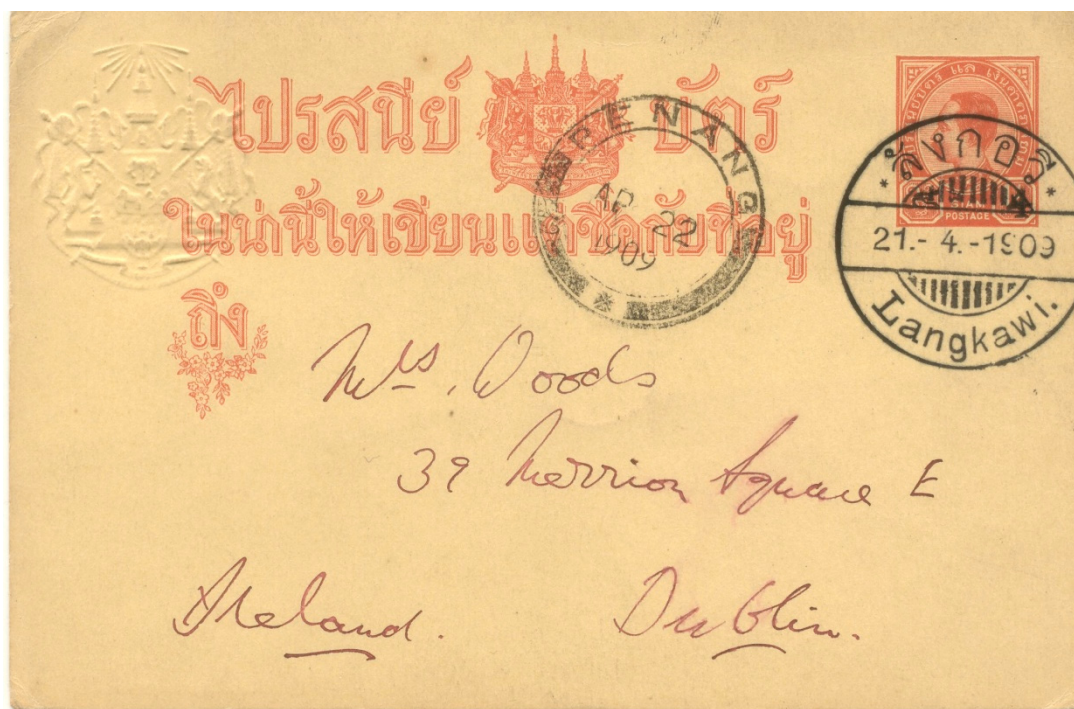 ไปรสนีย์ บัตร์
ในน่านี้ให้เขียนแต่ชื่อกับที่อยู่
ถึง
PENANG
AP 22
1909
ลังกาวี
21.-4.-1909
Langkawi.
SIAM
POSTAGE
Mrs. Woods
39 Merrion Square E
Dublin.
Ireland.